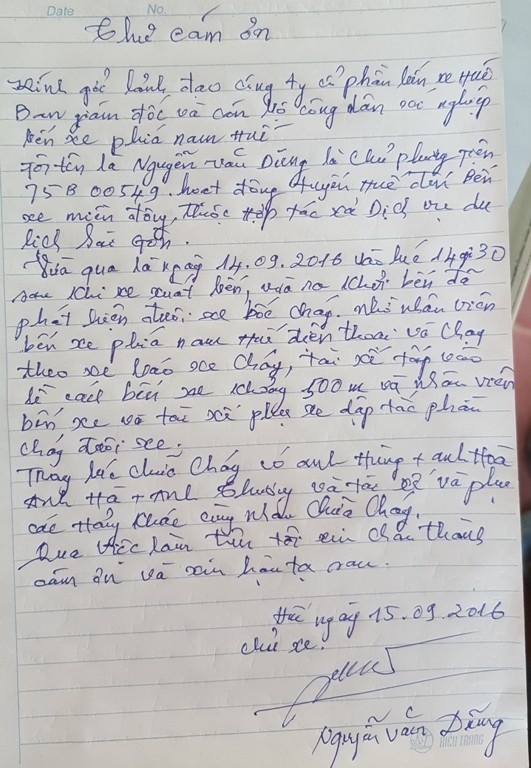 Date No.
Thư cám ơn
Kính gởi lảnh đạo công ty cổ phần bến xe Huế
Ban giám đốc và cán bộ công nhân xí nghiệp
bến xe phiá nam Huế
Tôi tên là Nguyễn Văn Dũng là chủ phương tiện
75B 00549. hoạt động tuyến Huế đến Bến
xe miền đông, thuộc Hợp tác xả Dịch vụ du
lịch Sài Gòn.
Vừa qua là ngày 14.09.2016 vào lúc 14 giờ 30
sau khi xe xuất bến, vừa ra khỏi bến đã
phát hiện dưới xe bốc cháy. nhờ nhân viên
bến xe phiá nam Huế điện thoại và chạy
theo xe báo xe cháy, tài xế tấp vào
lề cách bến xe khoảng 500m và nhân viên
bến xe và tài xế phụ xe dập tắc phần
cháy dưới xe.
Trong lúc chửa cháy có anh Hùng + anh Hoà
Anh Hà + Anh Chương và tài xế và phụ
các hảng khác cùng nhau chửa cháy.
Qua việc làm trên tôi xin chân thành
cảm ơn và xin hậu tạ sau.
Huế ngày 15.09.2016
chủ xe.
Nguyễn Văn Dũng